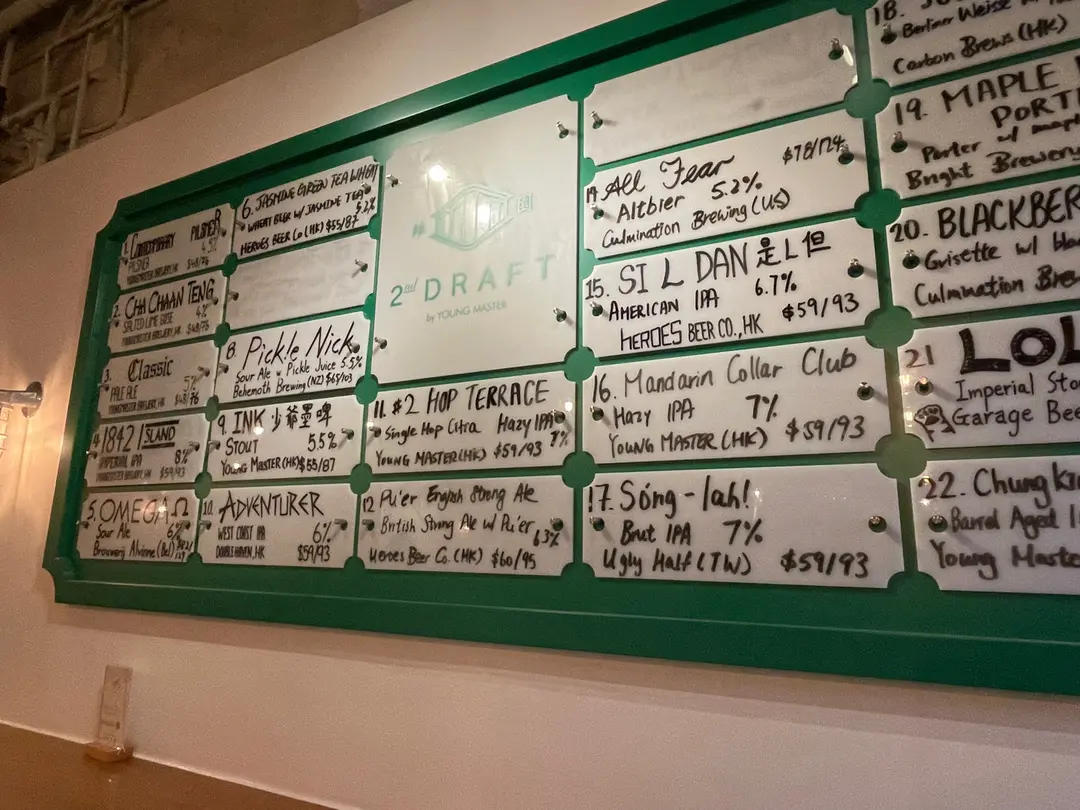 1. CONTEMPORARY PILSNER
PILSNER 4.5%
YOUNG MASTER BREWERY, HK $48/76
2. CHA CHAAN TENG
SALTED LIME GOSE 4%
YOUNG MASTER BREWERY, HK $48/76
3. Classic
PALE ALE 5%
YOUNG MASTER BREWERY, HK $48/76
4. 1842 ISLAND
IMPERIAL IPA 8%
YOUNG MASTER BREWERY, HK $59/93
5. OMEGA Ω
Sour Ale 6%
Brouwerij Alvinne (Bel)
6. JASMINE GREEN TEA WHEAT
WHEAT BEER W/ JASMINE TEA 5.2%
HEROES BEER Co (HK) $55/87
8. Pickle Nick
Sour Ale w Pickle Juice 5.5%
Behemoth Brewing (NZ) $65/103
9. INK 少爺墨啤
STOUT 5.5%
YOUNG MASTER (HK) $55/87
10. ADVENTURER
WEST COAST IPA 6%
DOUBLE HAVEN, HK $59/93
2nd DRAFT
by YOUNG MASTER
11. #2 HOP TERRACE
Single Hop Citra Hazy IPA 7%
YOUNG MASTER (HK) $59/93
12 Pu'er English Strong Ale
British Strong Ale w/ Pu'er 6.3%
Heroes Beer Co. (HK) $60/95
14 All Fear $78/124
Altbier 5.2%
Culmination Brewing (US)
15. SI L DAN 是L但
AMERICAN IPA 6.7%
HEROES BEER CO., HK $59/93
16. Mandarin Collar Club
Hazy IPA 7%
YOUNG MASTER (HK) $59/93
17. Sóng-lah!
Brut IPA 7%
Ugly Half (TW) $59/93
18.
Berliner Weisse
Carbon Brews (HK)
19. MAPLE
PORT
Porter w/ maple
Bright Brewery
20. BLACKBER
Grisette w/ bla
Culmination Bre
21 LOL
Imperial Sto
Garage Bee
22. Chung Ki
Barrel Aged I
Young Maste